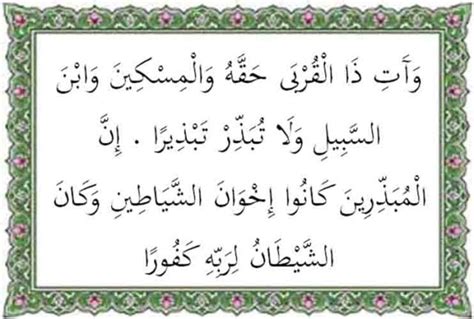 وَآَتِ ذَا الْقُرْبَى حَقَّهُ وَالْمِسْكِينَ وَابْنَ
السَّبِيلِ وَلَا تُبَذِّرْ تَبْذِيرًا . إِنَّ
الْمُبَذِّرِينَ كَانُوا إِخْوَانَ الشَّيَاطِينِ وَكَانَ
الشَّيْطَانُ لِرَبِّهِ كَفُورًا